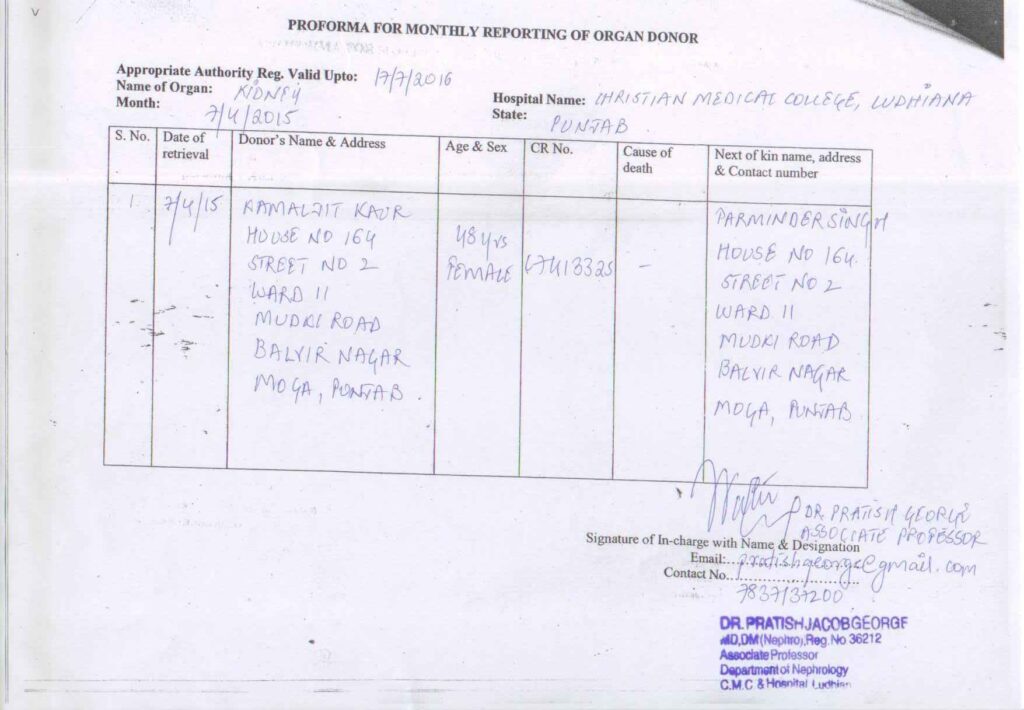 PROFORMA FOR MONTHLY REPORTING OF ORGAN DONOR
Appropriate Authority Reg. Valid Upto: 17/7/2016
Name of Organ: KIDNEY
Hospital Name: CHRISTIAN MEDICAL COLLEGE, LUDHIANA
Month: 7/4/2015
State: PUNJAB
S. No.
Date of retrieval
Donor's Name & Address
Age & Sex
CR No.
Cause of death
Next of kin name, address & Contact number
1
7/4/15
KAMALJIT KAUR
HOUSE NO 164
STREET NO 2
WARD 11
MUDKI ROAD
BALVIR NAGAR
MOGA, PUNJAB.
48 yrs
FEMALE
C7413325
-
PARMINDER SINGH
HOUSE NO 164
STREET NO 2
WARD 11
MUDKI ROAD
BALVIR NAGAR
MOGA, PUNJAB
DR. PRATISH GEORGE
ASSOCIATE PROFESSOR
Signature of In-charge with Name & Designation
Email: pratishgeorge@gmail.com
Contact No. 7837137200
DR. PRATISH JACOB GEORGE
MD,DM (Nephro),Reg. No 36212
Associate Professor
Department of Nephrology
C.M.C & Hospital Ludhian